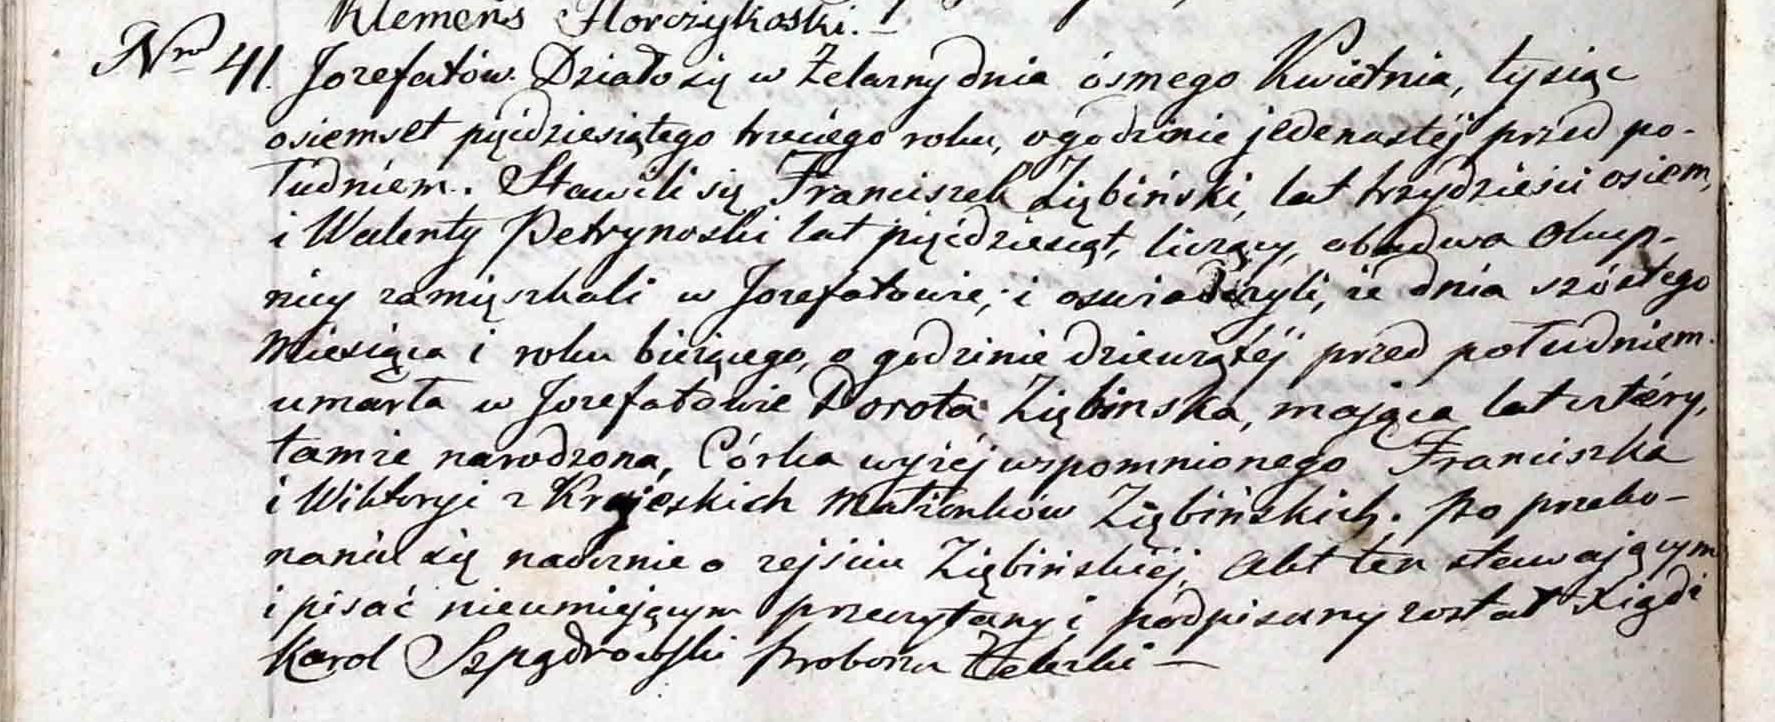 Klemens Florczykoski. –
Nro 41. Jozefatów. Działo się w Żelazny dnia ósmego Kwietnia, tysiąc
osiemset pięćdziesiątego trzeciego roku, o godzinie jedenastéj przed po-
łudniem. Stawili się Franciszek Ziębiński, lat trzydzieści osiem,
i Walenty Petrynoski lat pięćdziesiąt, liczący, obadwa Okup-
nicy zamięszkali w Jozefatowie, i oświadczyli, że dnia szóstego
Miesiąca i roku bieżącego, o godzinie dziewiątéj przed południem
umarła w Jozefatowie Dorota Ziębinska, mająca lat cztéry,
tamże narodzona, Córka wyżéj wspomnionego Franciszka
i Wiktoryi z Krajeskich Małżonków Ziębińskich. Po przeko-
naniu się naocznie o zejściu Ziębińskiéj, Akt ten stawającym
i pisać nieumiejącym przeczytany i podpisany został Xiądz
Karol Proboszcz –